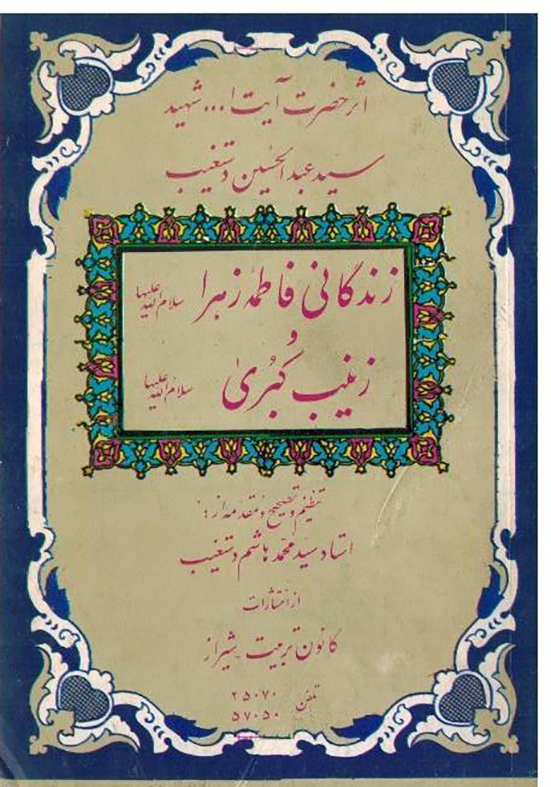 اثر حضرت آیت ا... شهید
سید عبدالحسین دستغیب
زندگانی فاطمه زهرا سلام الله علیها
و
زینب کبری سلام الله علیها
تنظیم و تصحیح و مقدمه از:
استاد سید محمد هاشم دستغیب
از انتشارات
کانون تربیت شیراز
تلفن ۲۵۰۷۰
۵۷۰۵۰